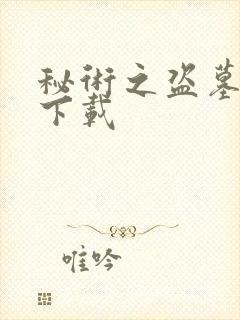 秘術之盗墓
下載
唯吟